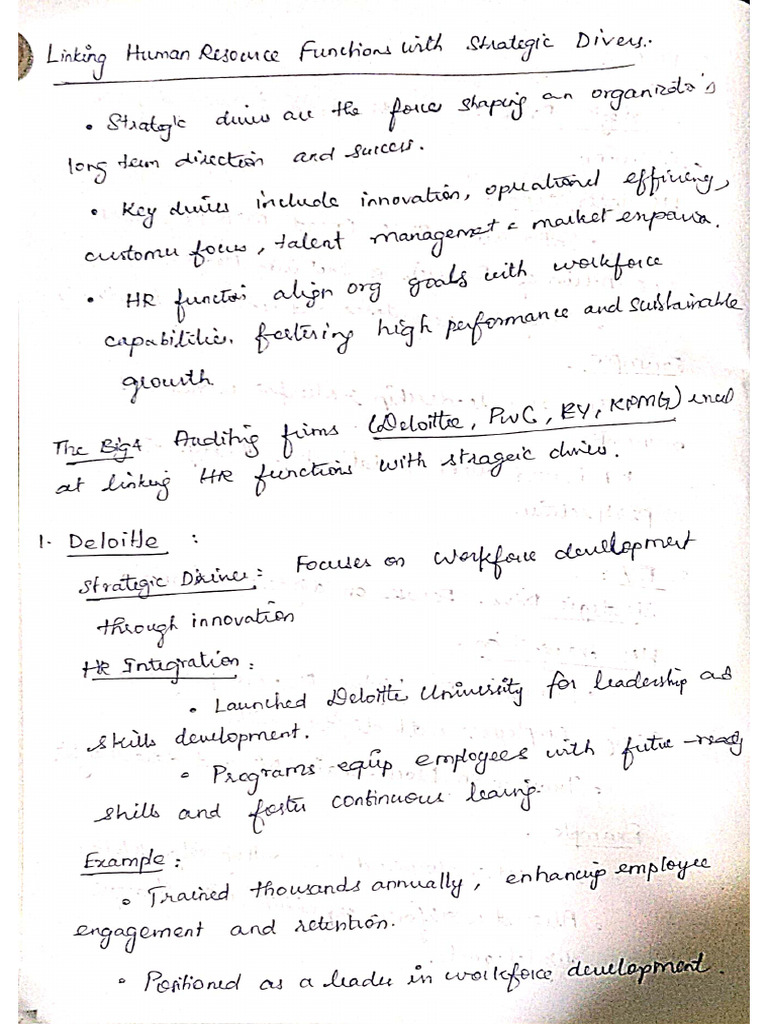 Linking Human Resource Functions with Strategic Divers.
• Strategic drives are the force shaping an organizato's
long term direction and success.
• Key drives include innovation, operational efficiency,
customer focus, talent management & market expansion.
• HR function align org goals with workforce
capabilities. fostering high performance and sustainable
growth
The Big4 Auditing firms (Deloitte, PwC, EY, KPMG) excel
at linking HR functions with strageic drives.
1. Deloitte :
Strategic Driver : Focuses on workforce development
through innovation
HR Integration :
• Launched Deloitte University for leadership and
skills development.
• Programs equip employees with future-ready
skills and foster continuous learning.
Example :
• Trained thousands annually, enhancing employee
engagement and retention.
• Positioned as a leader in workforce development.